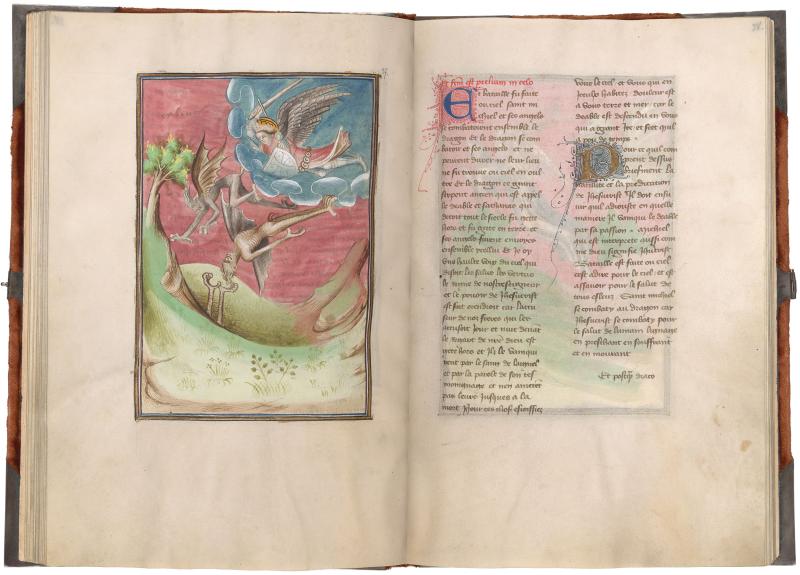 Et fcm est prelium in celo
Et bataille fu faite
ou ciel saint mi
chiel et ses angels
se combatoient ensemble le
dragon Et le dragon se com
batoit et ses angels et ne
peurent durer ne leur lieu
ne fu trouve ou ciel en oul
tre Et le dragon ce grant
serpent ancien qui est appel
le deable et sathanas qui
decoit tout le siecle fu gette
hors et fu gette en terre et
ses angels furent envoyes
ensemble
une haulte voix du ciel qui
disoit les salus les vertus
le regne de nostre seigneur
et le pouoir de Jhesucrist
est fait
seur de nos freres qui les
accusoit Jour et nuit devant
le regart de nre dieu est
gette hors et Ilz le vainqui
rent par le sang de l
et par la parole de son tes
moignage et nen
pas leurs Jusques a la
mort
vous le ciel et vous qui en
Jcellui habitez douleur est
a vous terre et mer car le
deable est descendu en vous
qui a grant Jre et scet quil
a peu de temps
Pour ce quil com
prent dessus
briefment la
nativite et la predication
de Jhesucrist Il doit ensu
iur quil adiouste en quelle
maniere Il vainqui le deable
par sa passion Michiel
qui est interprete aussi com
me dieu signifie Jhucrist
Bataille est faite ou ciel
cest adire pour le ciel et est
assauoir pour le salut de
tous esleuz Saint michiel
se combaty au dragon car
Jhesucrist se combaty pour
le salut de lumain lignage
en preschant en souffrant
et en mourant
Et postqm draco